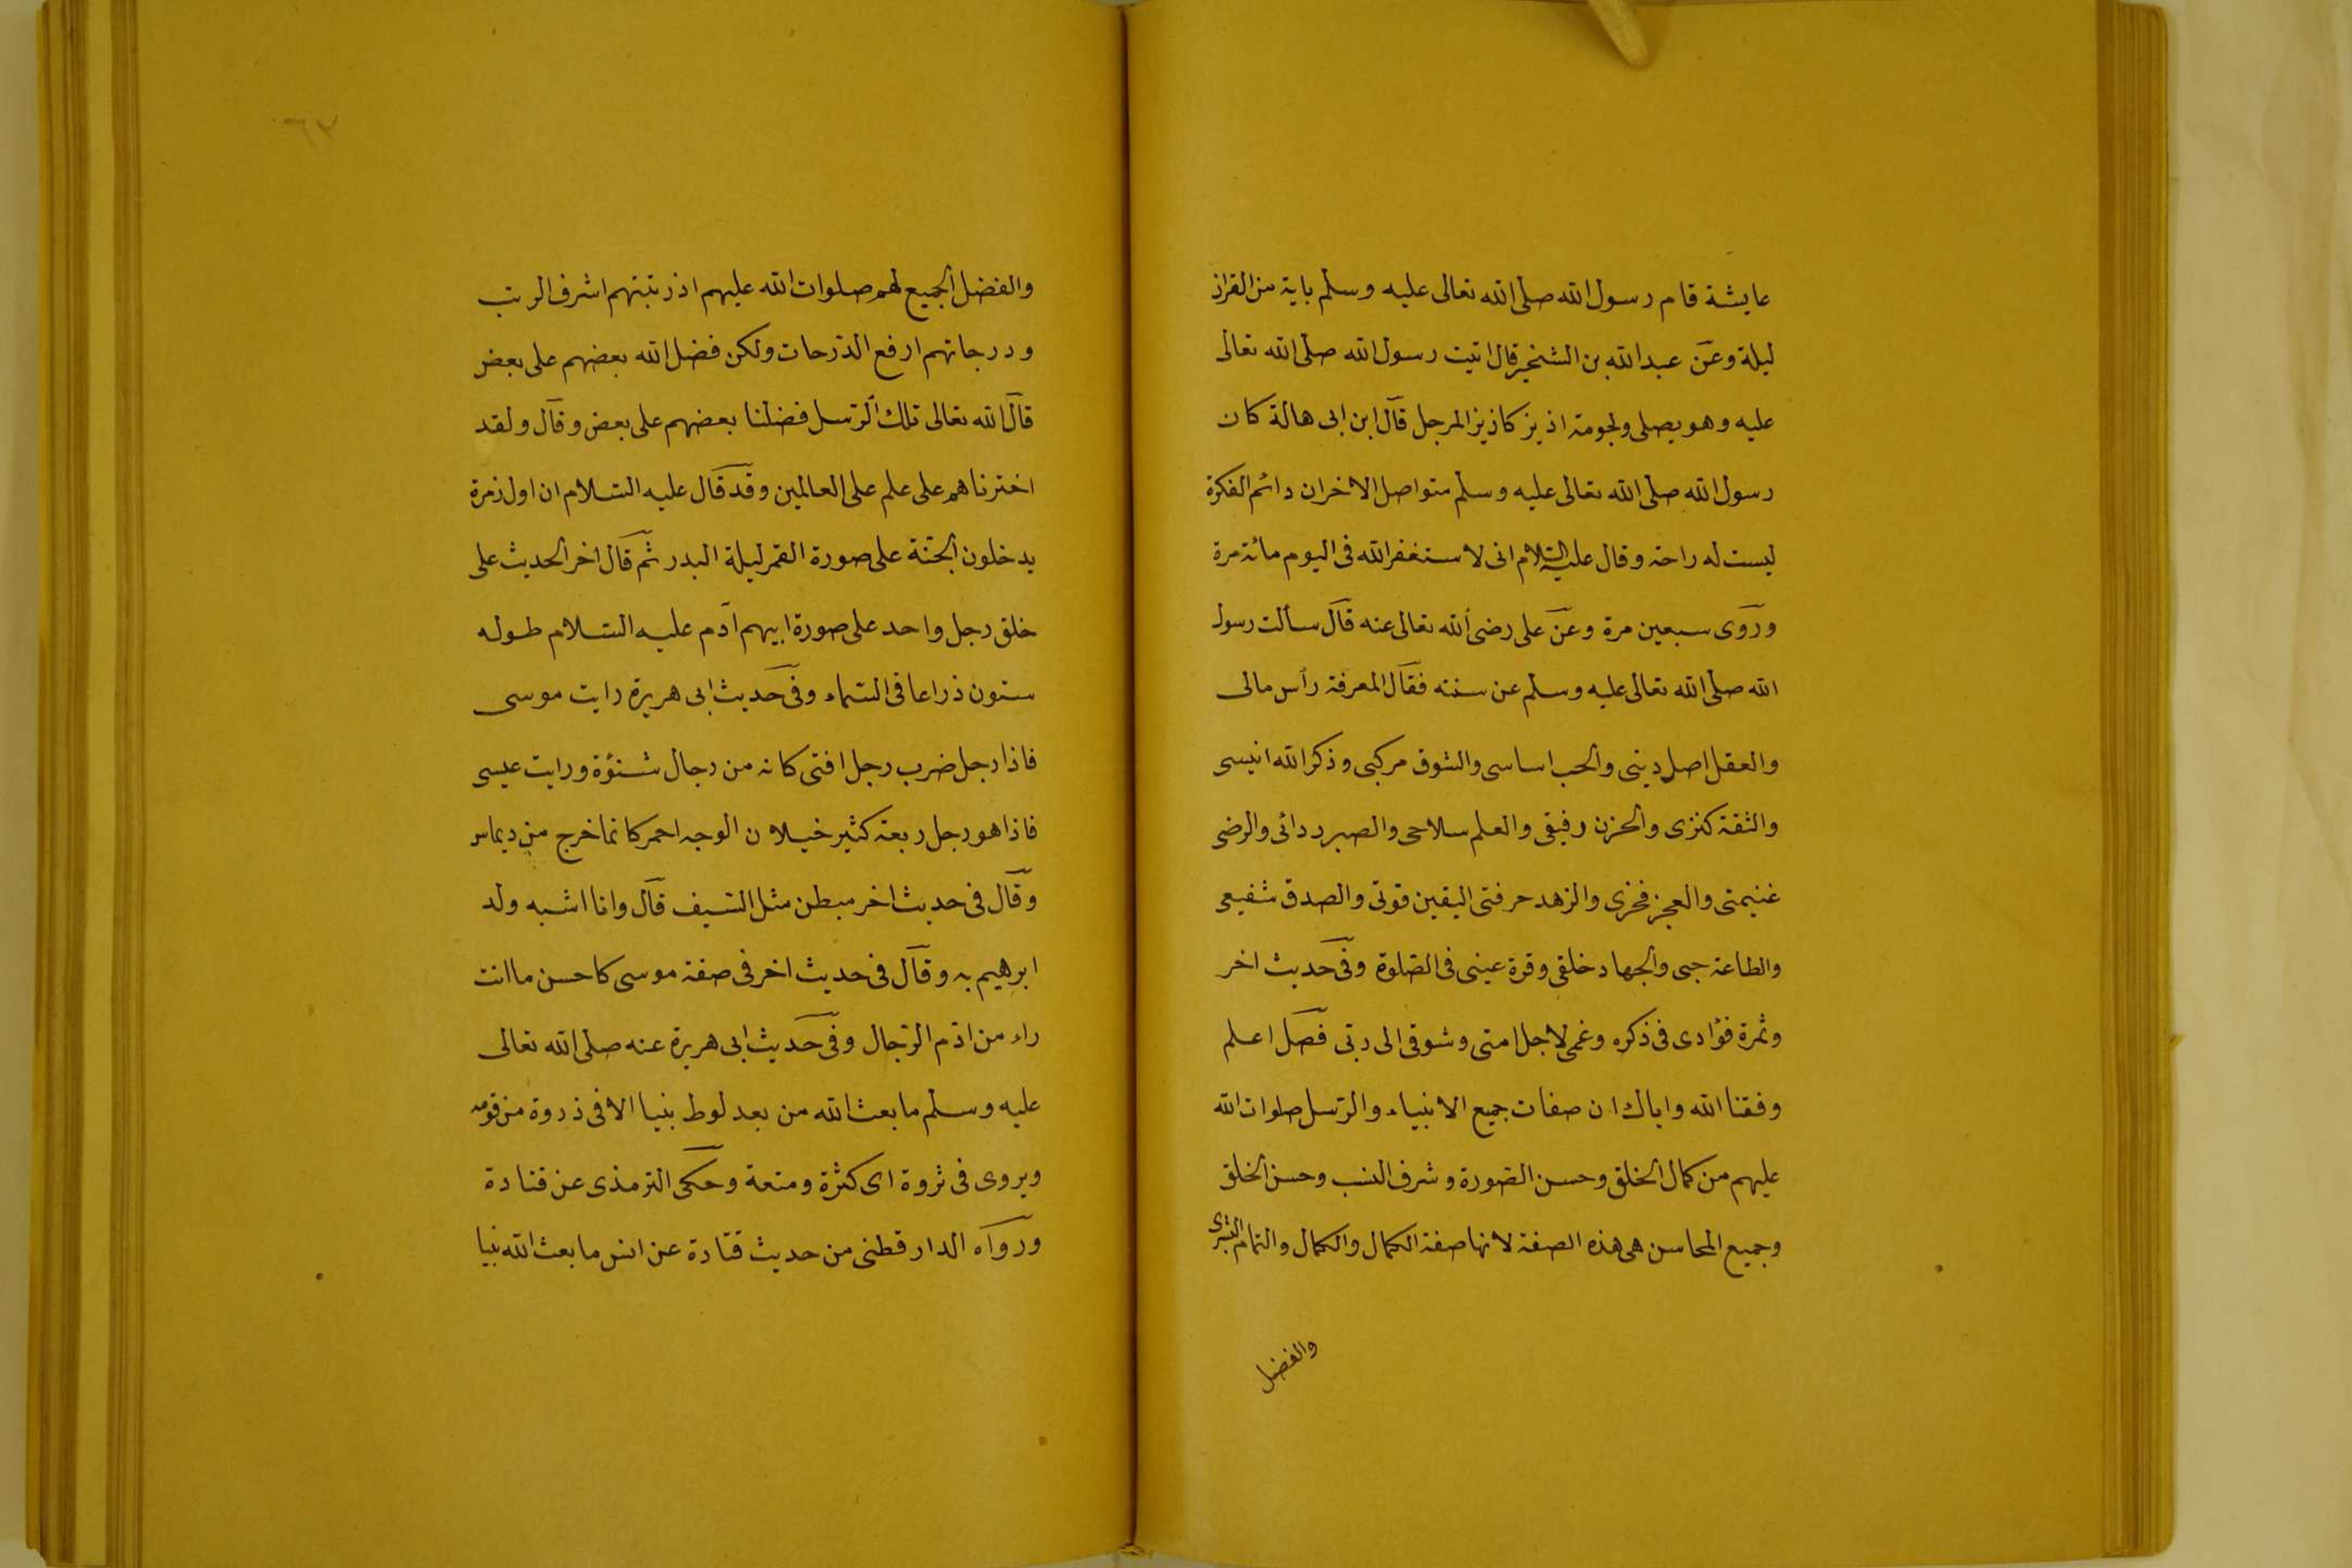 عايشة قام رسول الله صلى الله تعالى عليه وسلم باية من القران
ليلة وعن عبد الله بن الشخير قال اتيت رسول الله صلى الله تعالى
عليه وهو يصلى ولجوفه ازيز كازيز المرجل قال ابن ابى هالة كان
رسول الله صلى الله تعالى عليه وسلم متواصل الاخران دائم الفكرة
ليست له راحة وقال عليه السلام انى لاستغفر الله فى اليوم مائة مرة
وروى سبعين مرة وعن على رضى الله تعالى عنه قال سألت رسول
الله صلى الله تعالى عليه وسلم عن سنته فقال المعرفة رأس مالى
والعقل اصل دينى والحب اساسى والشوق مركبى وذكر الله انيسى
والثقة كنزى والحزن رفيقى والعلم سلاحى والصبر ردائى والرضى
غنيمتى والعجز فخرى والزهد حرفتى اليقين قوتى والصدق شفيعى
والطاعة حبى والجهاد خلقى وقرة عينى فى الصلوة وفى حديث اخر
وثمرة فؤادى فى ذكره وغمى لاجل امتى وشوقى الى ربى فصل اعلم
وفقنا الله واياك ان صفات جميع الانبياء والرسل صلوات الله
عليهم من كمال الخلق وحسن الصورة وشرف النسب وحسن الخلق
وجميع المحاسن هى هذه الصفة لانها صفة الكمال والكمال والتمام البشرى
والفضل
٦٣
والفضل الجميع لهم صلوات الله عليهم اذ رتبتهم اشرف الرتب
ودرجاتهم ارفع الدرجات ولكن فضل الله بعضهم على بعض
قال الله تعالى تلك الرسل فضلنا بعضهم على بعض وقال ولقد
اخترناهم على علم على العالمين وقد قال عليه السلام ان اول زمرة
يدخلون الجنة على صورة القمر ليلة البدر ثم قال اخر الحديث على
خلق رجل واحد على صورة ابيهم آدم عليه السلام طوله
ستون ذراعا فى السماء وفى حديث ابى هريرة رايت موسى
فاذا رجل ضرب رجل افتى كانه من رجال شنؤة ورايت عيسى
فاذا هو رجل ربعة كثير خيلان الوجه احمر كانما خرج من ديماس
وقال فى حديث اخر مبطن مثل السيف قال وانا اشبه ولد
ابرهيم به وقال فى حديث اخر فى صفة موسى كاحسن ما انت
راء من ادم الرجال وفى حديث ابى هريرة عنه صلى الله تعالى
عليه وسلم ما بعث الله من بعد لوط نبيا الا فى ذروة من قومه
ويروى فى ثروة اى كثرة ومنعة وحكى الترمذى عن قتادة
ورواه الدار قطنى من حديث قتادة عن انس ما بعث الله نبيا